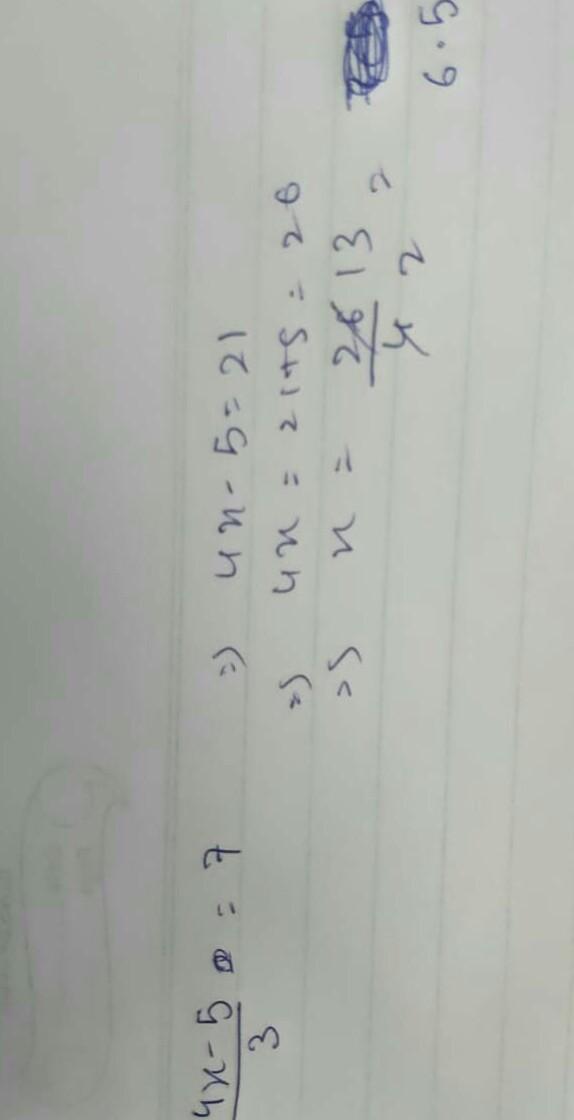 4x-5/3 = 7 => 4x - 5 = 21
=> 4x = 21+5 = 26
=> x = 26/4 13/2 =
6.5